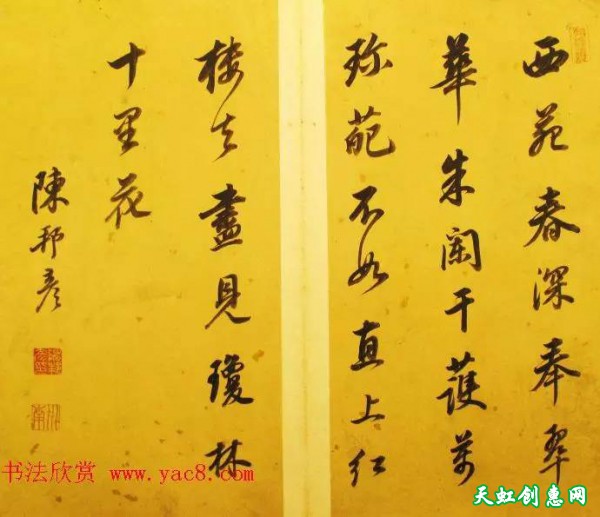 西苑春深奉翠
華朱闌干護萬
珎葩不如直上红
楼去盡見瓊林
十里花
陳邦彦
书法欣赏 www.yac8.com
天虹创惠网